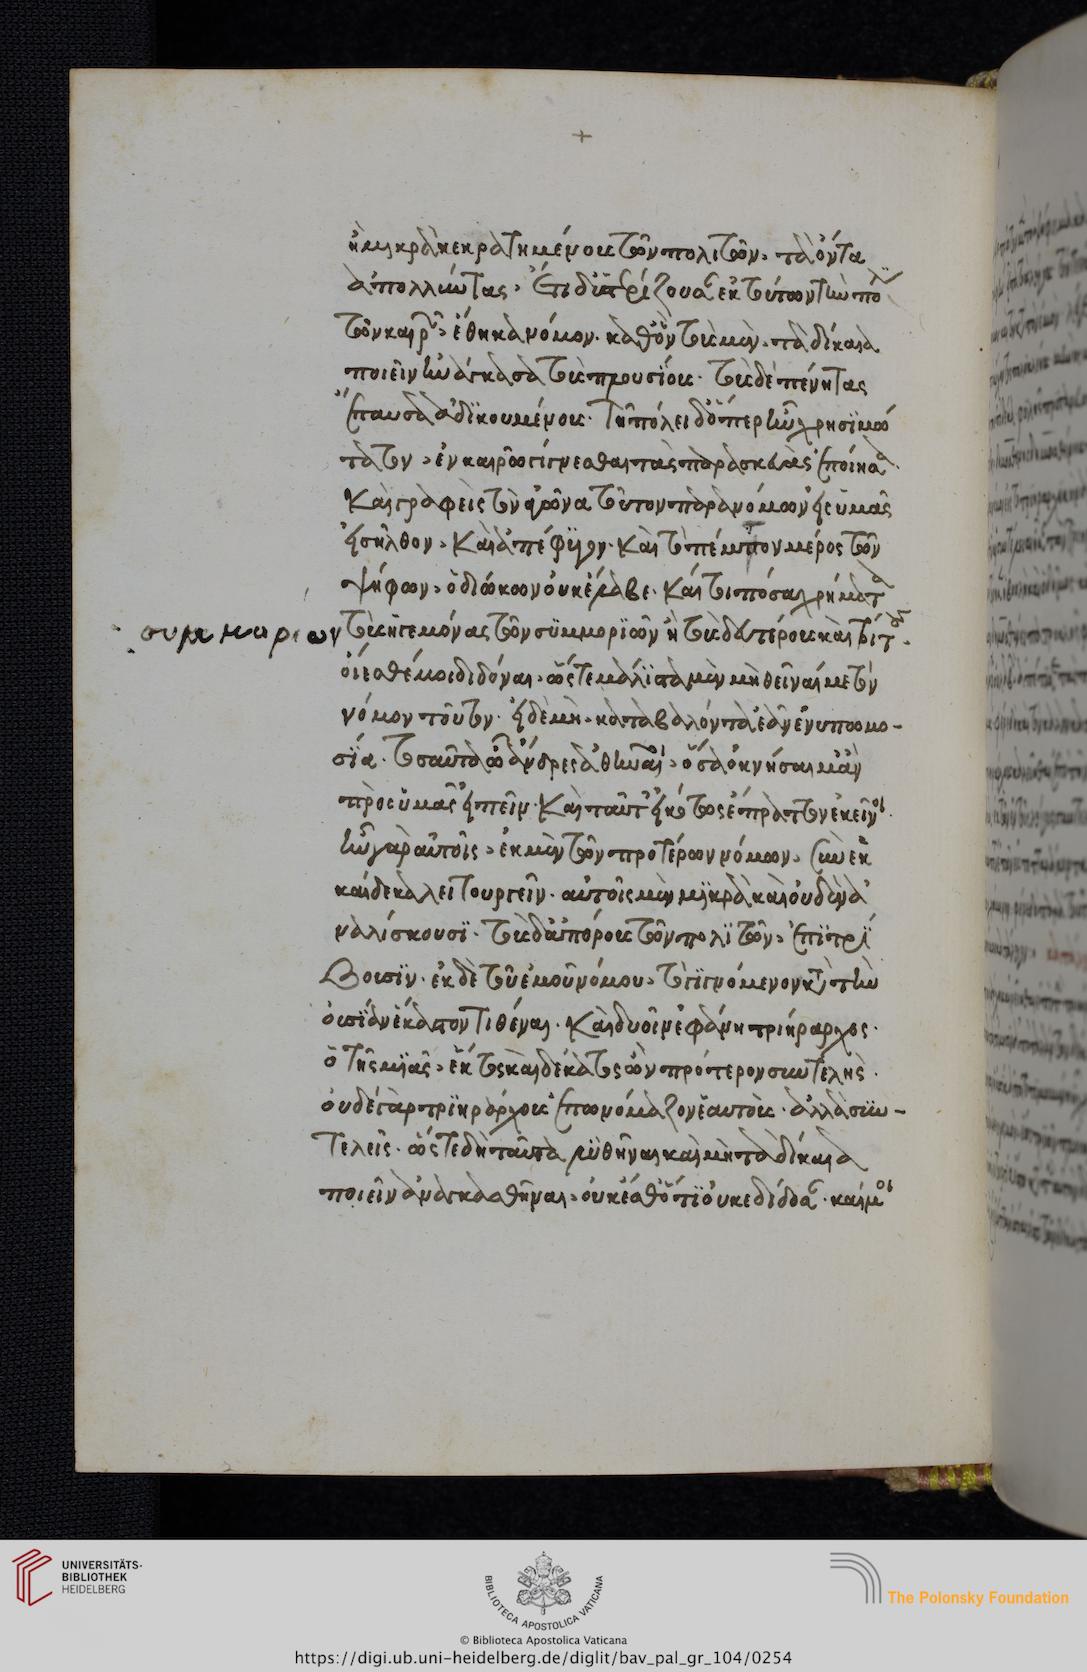 +
ἢ μικρὰ κεκρατημένους τῶν πολιτῶν, τὰ ὄντα
ἀπολλύντας. ἔτι δὲ ὑστερίζουσαν ἐκ τούτων τὴν πόλιν
τῶν καιρῶν, ἔθηκα νόμον καθ' ὃν τοὺς μὲν τὰ δίκαια
ποιεῖν ἠνάγκασα τοὺς πλουσίους. τοὺς δὲ πένητας
ἔπαυσα ἀδικουμένους. τῇ πόλει δ' ὅπερ ἦν χρησιμώ
τατον, ἐν καιρῷ γίγνεσθαι τὰς παρασκευὰς ἐποίησα.
καὶ γραφεὶς τὸν ἀγῶνα τοῦτον παρανόμων εἰς ὑμᾶς
εἰσῆλθον, καὶ ἀπέφυγον. καὶ τὸ πέμπτον μέρος τῶν
ψήφων, ὁ διώκων οὐκ ἔλαβε. καί τοι πόσα χρήματα
συμμοριων
τοὺς ἡγεμόνας τῶν συμμοριῶν ἢ τοὺς δευτέρους καὶ τρίτους
οἴεσθέ μοι διδόναι, ὥστε μάλιστα μὲν μὴ θεῖναί με τὸν
νόμον τοῦτον. εἰ δὲ μὴ, καταβαλόντα ἐᾶν ἐν ὑπωμο-
σίᾳ. τοσαῦτα ὦ ἄνδρες ἀθηναῖοι, ὅσα ὀκνήσαιμ' ἂν
πρὸς ὑμᾶς εἰπεῖν. καὶ ταῦτ' εἰκότως ἔπραττον ἐκεῖνοι.
ἦν γὰρ αὐτοῖς, ἐκ μὲν τῶν προτέρων νόμων, συνεκ
καίδεκα λειτουργεῖν. αὐτοῖς μὲν μικρὰ καὶ οὐδὲν ἀ
ναλίσκουσι. τοὺς δ' ἀπόρους τῶν πολιτῶν, ἐπιτρί
βουσιν. ἐκ δὲ τοῦ ἐμοῦ νόμου, τὸ γιγνόμενον κατὰ τὴν
οὐσίαν ἕκαστον τιθέναι. καὶ δυοῖν ἐφάνη τριήραρχος.
ὁ τῆς μιᾶς, ἕκτος καὶ δέκατος ὢν πρότερον συντελής.
οὐδὲ γὰρ τριηράρχους ἐπωνόμαζον ἑαυτούς. ἀλλὰ συν-
τελεῖς. ὥστε δὴ ταῦτα λυθῆναι καὶ μὴ τὰ δίκαια
ποιεῖν ἀναγκασθῆναι, οὐκ ἔσθ' ὅτι οὐκ ἐδίδοσαν. καί μοι
UNIVERSITÄTS-
BIBLIOTHEK
HEIDELBERG
BIBLIOTECA APOSTOLICA VATICANA
The Polonsky Foundation
© Biblioteca Apostolica Vaticana
https://digi.ub.uni-heidelberg.de/diglit/bav_pal_gr_104/0254